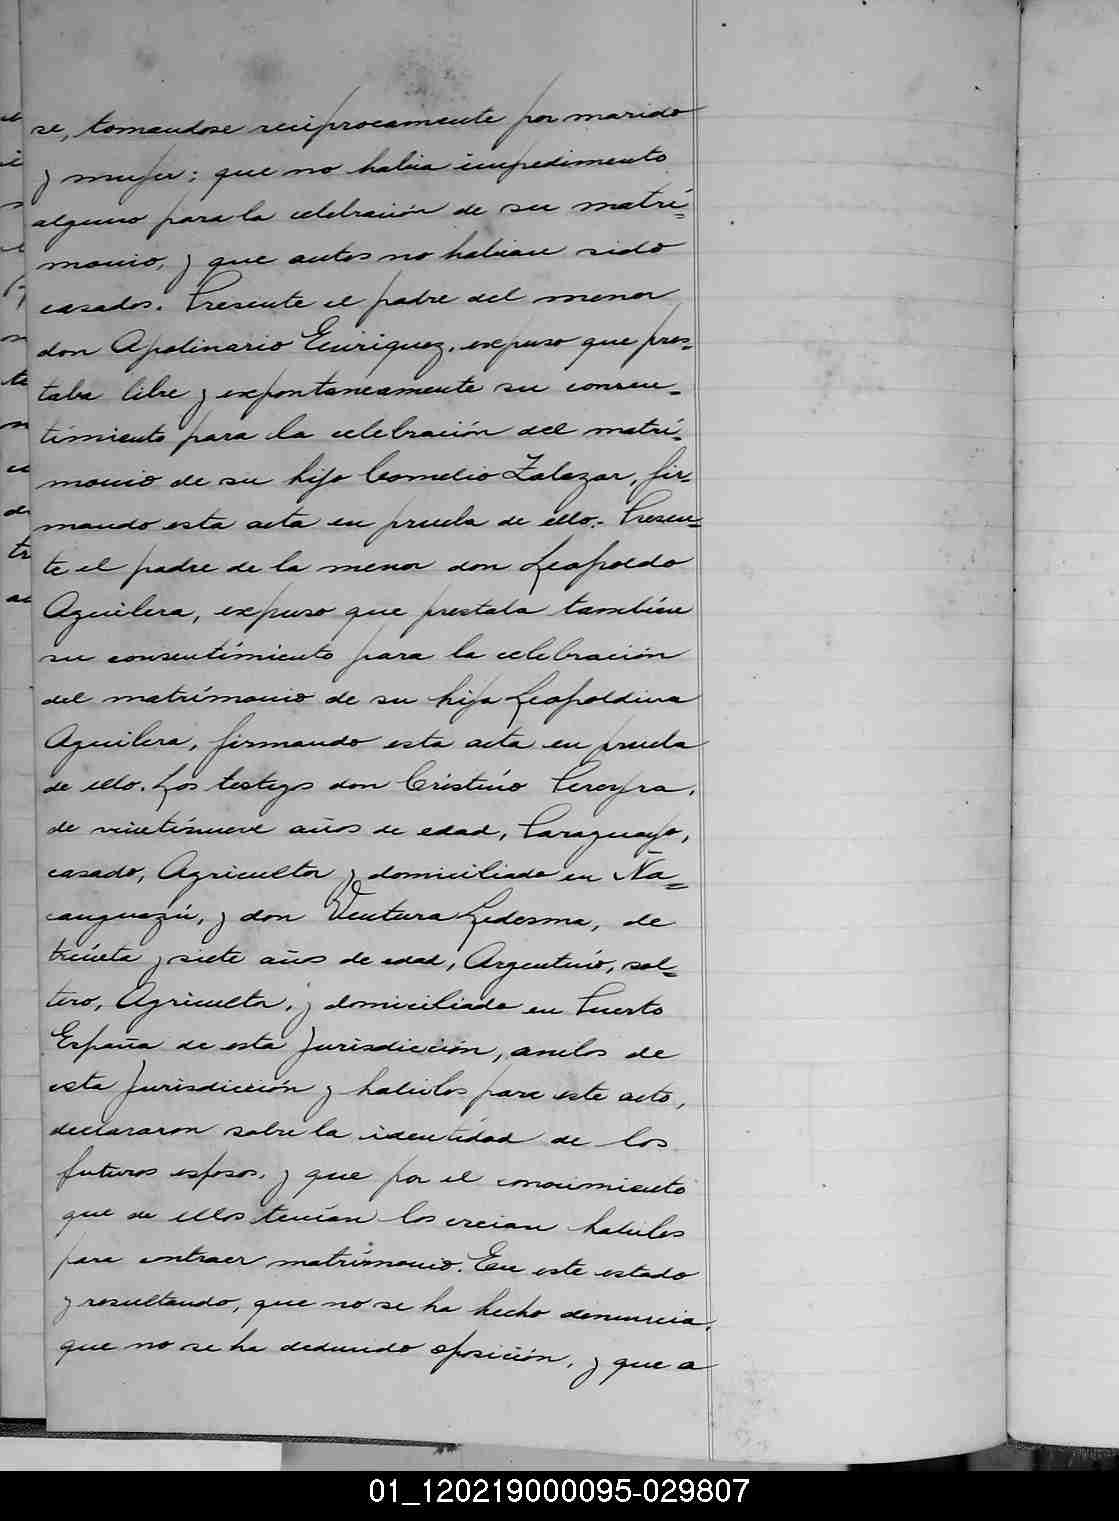 se, tomandose reciprocamente por marido
y mujer; que no habia impedimento
alguno para la celebración de su matri=
monio, y que antes no habian sido
casados. Presente el padre del menor
don Apolinario Enriquez, expuso que pres=
taba libre y expontaneamente su consen=
timiento para la celebración del matri=
monio de su hijo Cornelio Zalazar, fir=
mando esta acta en prueba de ello.- Presen=
te el padre de la menor don Leopoldo
Aguilera, expuso que prestaba tambien
su consentimiento para la celebración
del matrimonio de su hija Leopoldina
Aguilera, firmando esta acta en prueba
de ello. Los testigos don Cristino Pereyra,
de veintinueve años de edad, Paraguayo,
casado, Agricultor y domiciliado en Ña=
canguazú, y don Ventura Ledesma, de
treinta y siete años de edad, Argentino, sol=
tero, Agricultor, y domiciliado en Puerto
España de esta Jurisdicción, ambos de
esta Jurisdicción y habiles para este acto,
declararon sobre la identidad de los
futuros esposos, y que por el conocimiento
que de ellos tenían los creian habiles
para contraer matrimonio. En este estado
y resultando, que no se ha hecho denuncia,
que no se ha deducido oposición, y que a
01_120219000095-029807